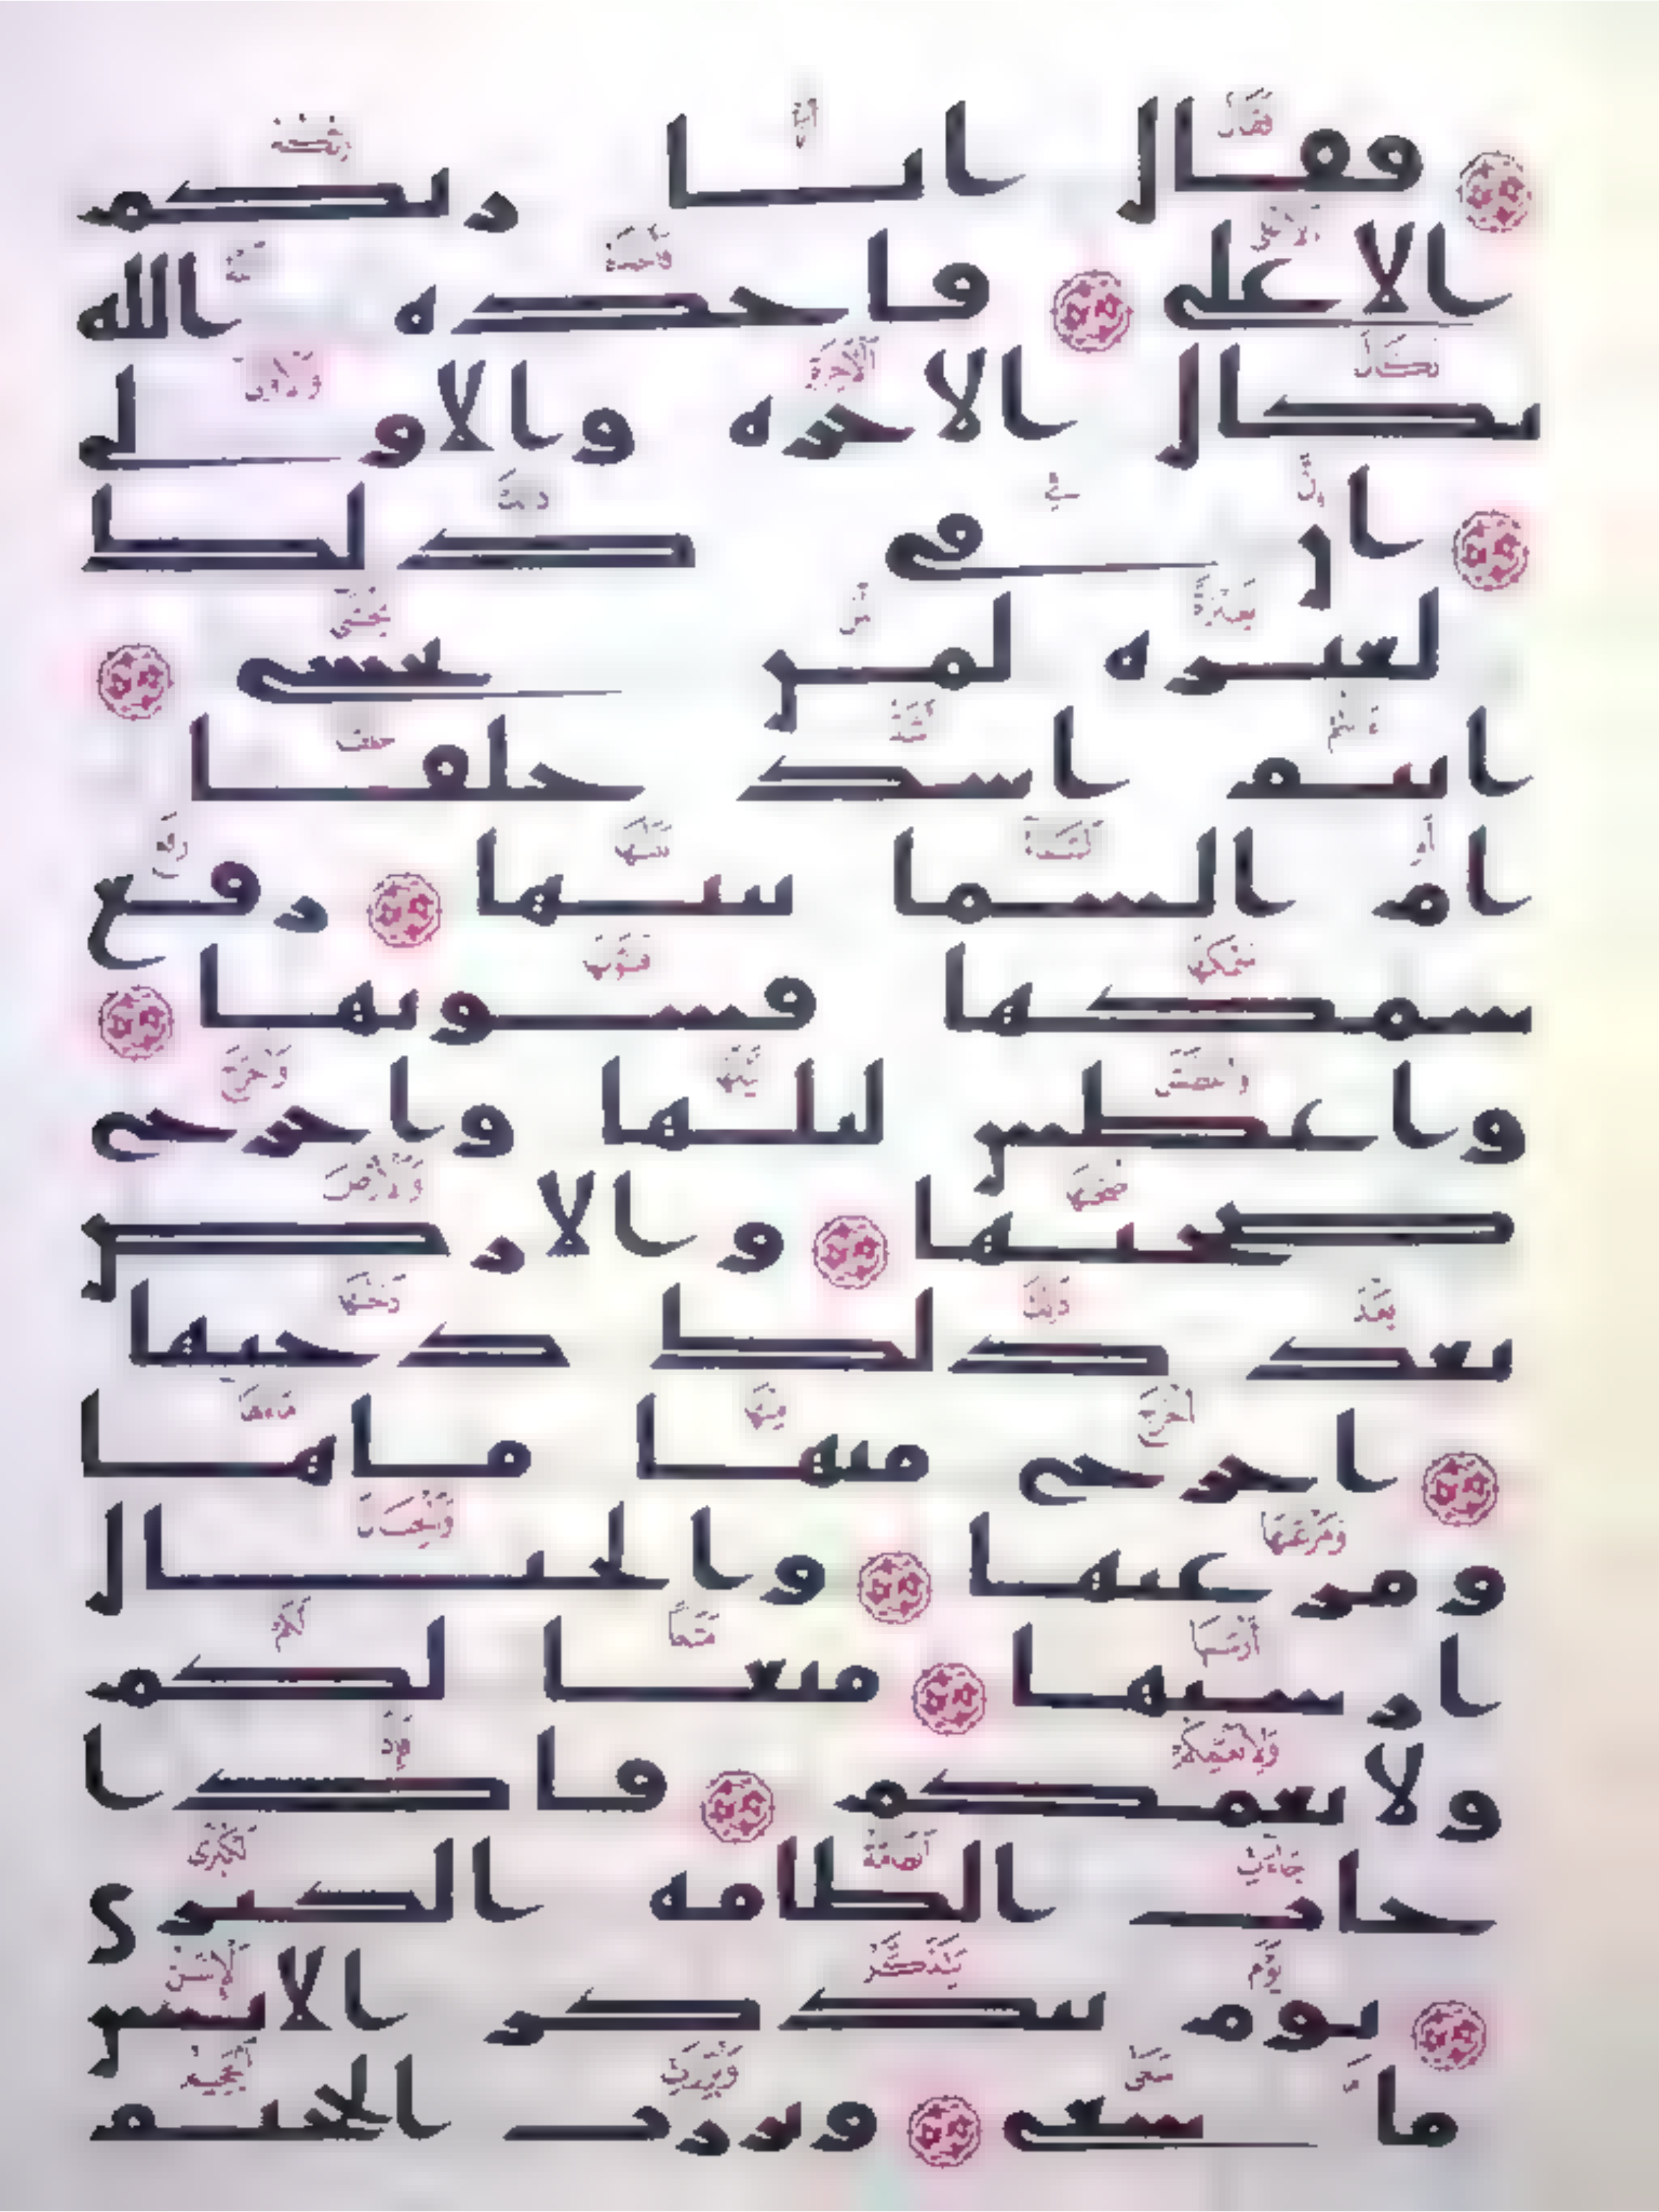 فقال انا ربكم
الاعلى فاخذه الله
نكال الاخره والاولى
ان في ذلك
لعبره لمن يخشى
انتم اشد خلقا
ام السما بنيها رفع
سمكها فسويها
واغطش ليلها واخرج
ضحيها والارض
بعد ذلك دحيها
اخرج منها ماها
ومرعيها والجبال
ارسيها متعا لكم
ولانعمكم فاذا
جات الطامه الكبرى
يوم يتذكر الانسن
ما سعى وبرزت الجحيم